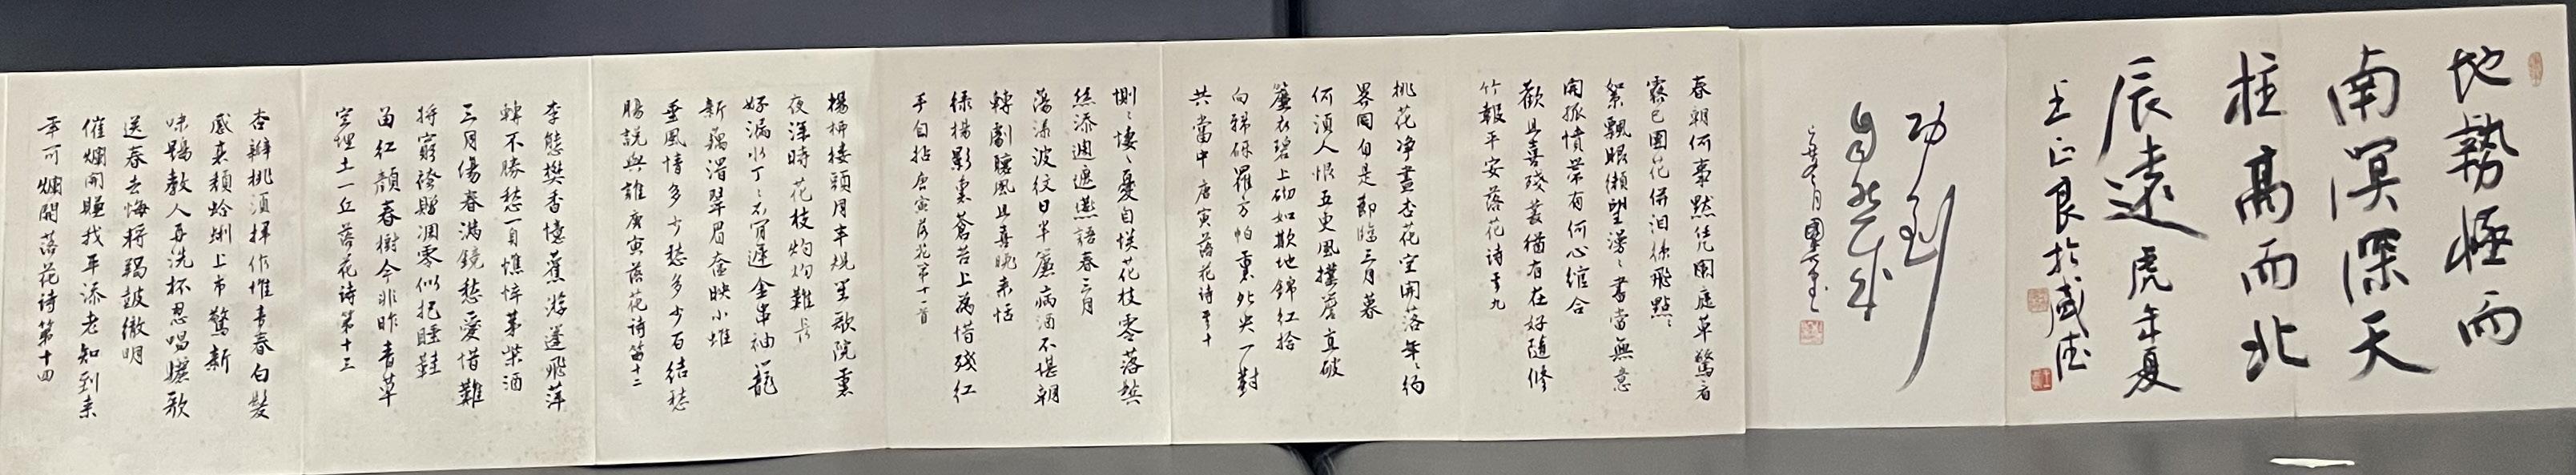 地勢極而
南溟深天
柱高而北
辰遠虎年夏
王正良於盛德
功到
自然成
春朝何事默憑闌庭草驚看
露已團花併淚絲飛點點
絮飄眼纈望漫漫書當無意
開孤憤帶有何心綰合
歡且喜殘叢猶有在好隨修
竹報平安落花诗第九
桃花净盡杏花空開落年年約
畧同自是節臨三月暮
何須人恨五更風撲簷直破
簾衣碧上砌如欺地錦紅拾
向錦砾羅方帕裹外夾一對
共當中唐寅落花诗第十
惻惻悽悽憂自惔花枝零落鬓
絲添週遮燕語春三月
蕩漾波紋日半簾病酒不堪朝
轉劇聽風且喜晚来恬
绿楊影裏蒼苔上為惜殘红
手自拈唐寅落花第十一首
楊柳楼頭月半規笙歌院裏
夜深時花枝灼灼難長
好漏水丁丁不肯遲金串袖籠
新藕滑翠眉奁映小堆
垂風情多少愁多少百結愁
腸説與誰唐寅落花诗第十二
李態樊香憶舊游蓬飛萍
轉不勝愁一身憔悴茅柴酒
三月傷春满鏡愁愛惜難
將窮袴贈凋零似把睡鞋
留红颜春樹今非昨青草
空埋土一丘落花诗第十三
杏瓣桃須掃作堆青春白髮
感衰頹蛤蜊上市驚新
味鶗鴂教人再洗杯忍唱驪歌
送春去悔將羯鼓徹明
催爛開賺我平添老知到来
年可爛開落花诗第十四